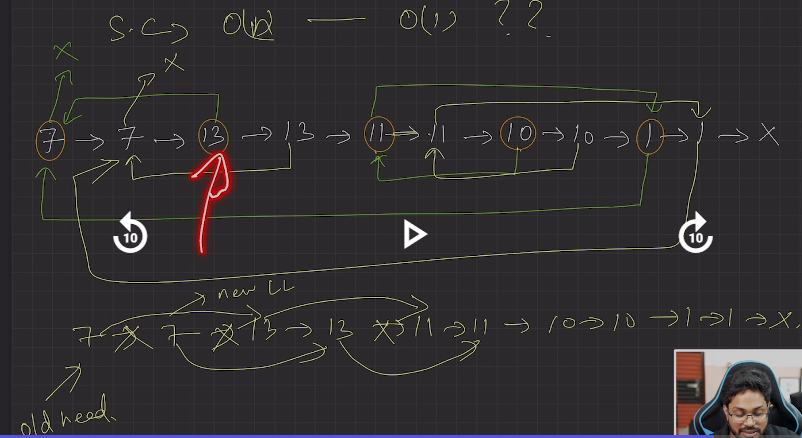 S.C → O(n) — O(1) ??
X X
7 → 7 → 13 → 13 → 11 → 11 → 10 → 10 → 1 → 1 → X
10 10
new LL
7 X 7 X 13 → 13 X → 11 → 11 → 10 → 10 → 1 → 1 → X
old head.